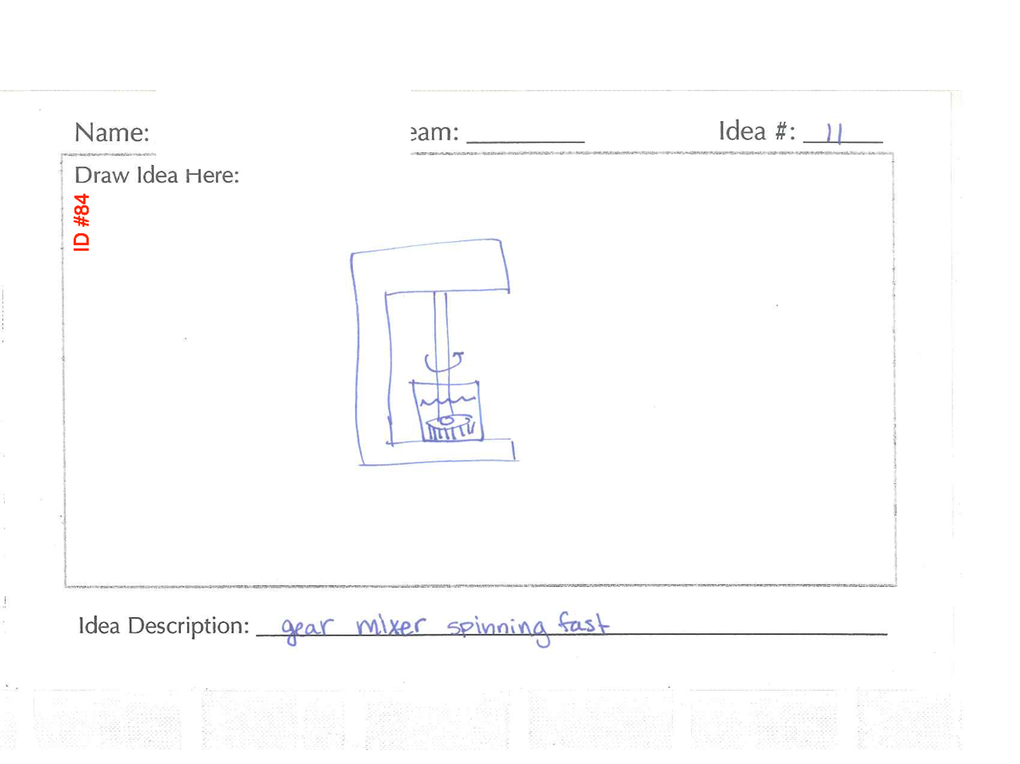 Name: eam: Idea #: 11
Draw Idea Here:
ID #84
Idea Description: gear mixer spinning fast